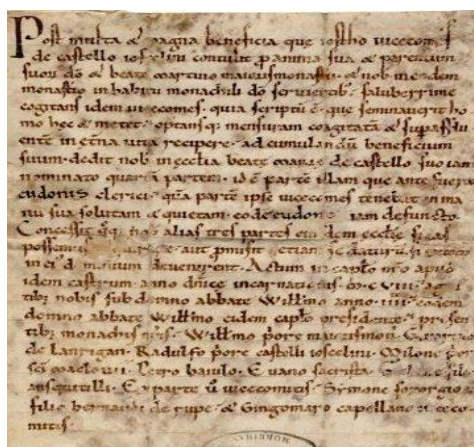 Post multa & magna beneficia que iostho vicecomes
de castello ioscelini contulit pro anima sua & parentum
suorū dō & beato martino maiorismonasterii & nob in eodem
monasterio in habitu monachili dō servientib; saluberrime
cogitans idem vicecomes. quia scriptū ē. que seminaverit ho
mo hec & metet. optansq; mensuram coagitatā & supaffluentē
in etna vita recipere. ad cumulandū beneficium
suum. dedit nob in ecclia beate marie de castello suo iam
nominato quartā partem. id ē partē illam que ante fuerat
eudonis clerici. quā partē ipse vicecomes tenebat in ma
nu sua solutam & quietam. eodē eudone iam defuncto.
Concessitq; nob alias tres partes eiusdem ecclie si eas
possemus aut pmisit etiam
in ei dominium devenirent. Actum in caplo nro apud
idem castrum. anno dnice incarnationis. m. c. viii.
tib; nobis sub domno abbate Willmo anno. iiii. eodem
domno abbate Willmo eidem caplo presidente. presen
tib; monachis nris. Willmo pore maiorismon.
de lanrigan. Radulfo pore castelli ioscelini. Milone pore
sci maclovii. Petro baiulo. Evano sacrista.
ansquitilli. Ex parte v vicecomitis. Symone sororgio
filio bernardi de rupe. & Gingomaro capellano vice
comitis.